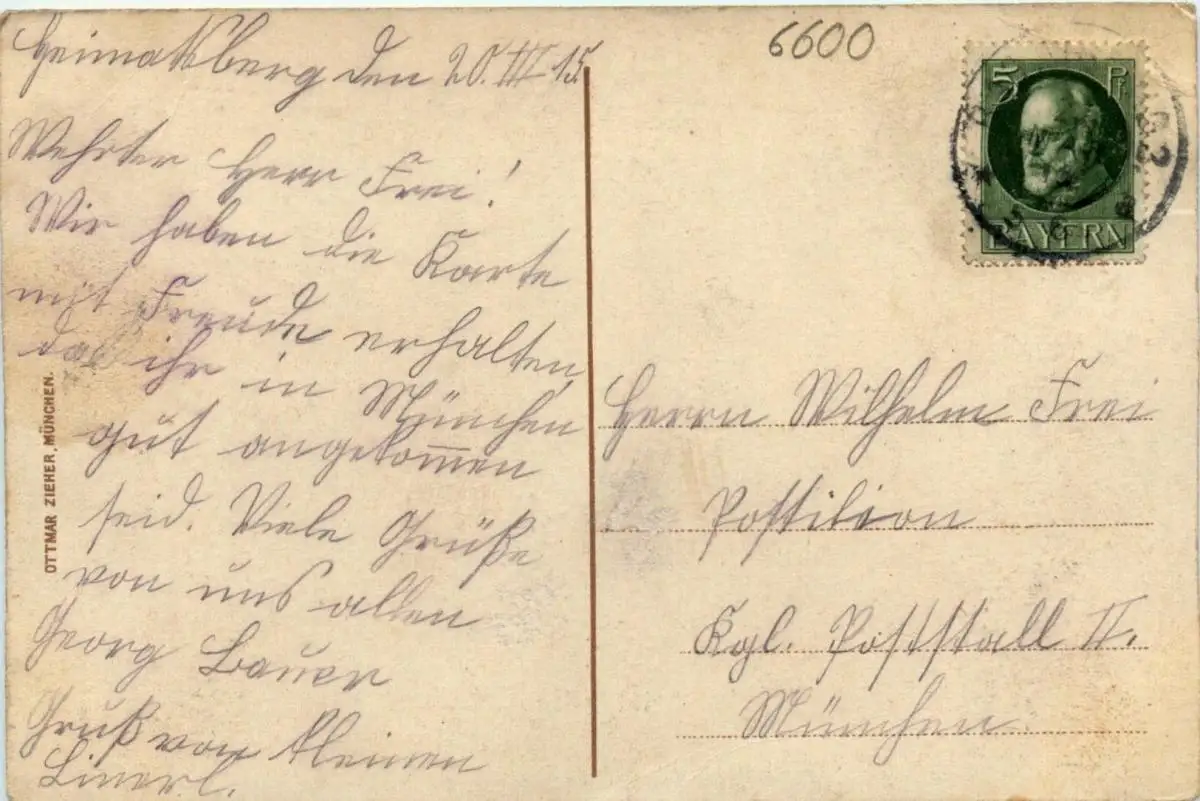 Heimatsberg den 20. III 15.
Wehrter Herr Frei!
Wir haben die Karte
mit Freude erhalten,
das ihr in München
gut angekommen
seid. Viele Grüße
von uns allen
Georg Bauer
Gruß von kleinen
Linerl.
OTTMAR ZIEHER, MÜNCHEN.
6600
5 Pf
BAYERN
Herrn Wilhelm Frei
Postilion
Kgl. Poststall II.
München.